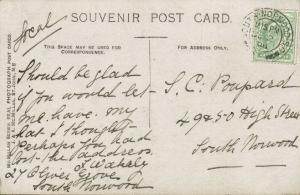 SOUVENIR POST CARD.
Local
THIS SPACE MAY BE USED FOR
CORRESPONDENCE.
FOR ADDRESS ONLY.
Should be glad
if you would let
me have my
hat I thought
Perhaps you had
lost the address
J Wakely
27 Clive Grove
South Norwood
S. C. Poupard
49 & 50 High Street
South Norwood